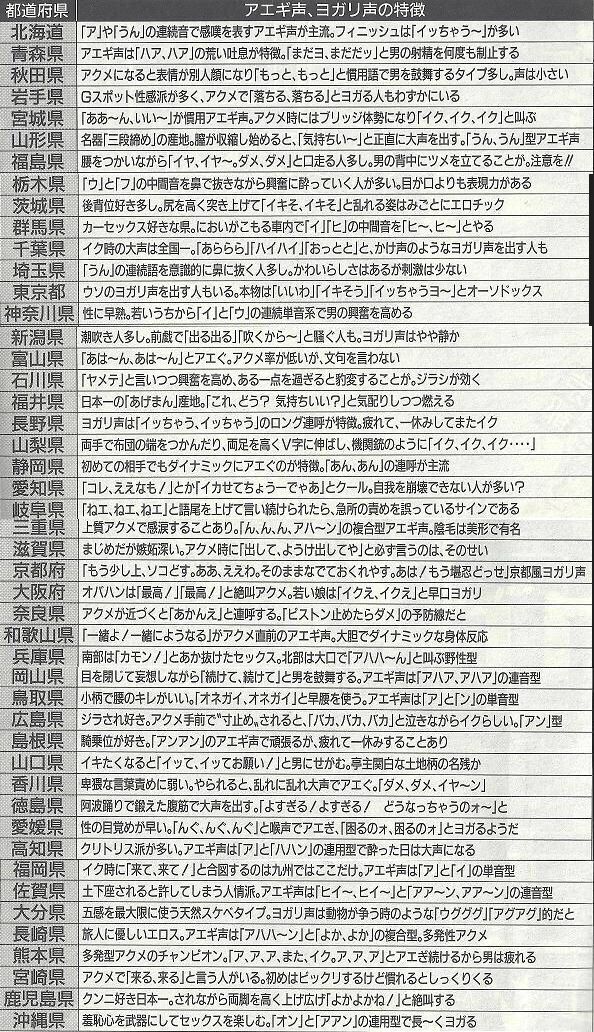 都道府県 アエギ声、ヨガリ声の特徴
北海道 「ア」や「うん」の連続音で感嘆を表すアエギ声が主流。フィニッシュは「イッちゃう〜」が多い
青森県 アエギ声は「ハア、ハア」の荒い吐息が特徴。「まだヨ、まだだッ」と男の射精を何度も制止する
秋田県 アクメになると表情が別人顔になり「もっと、もっと」と慣用語で男を鼓舞するタイプ多し。声は小さい
岩手県 Gスポット性感派が多く、アクメで「落ちる、落ちる」とヨガる人もわずかにいる
宮城県 「ああ〜ん、いい〜」が慣用アエギ声。アクメ時にはブリッジ体勢になり「イク、イク、イク」と叫ぶ
山形県 名器「三段締め」の産地。膣が収縮し始めると、「気持ちい〜」と正直に大声を出す。「うん、うん」型アエギ声
福島県 腰をつかいながら「イヤ、イヤ〜。ダメ、ダメ」と口走る人多し。男の背中にツメを立てることが。注意を!!
栃木県 「ウ」と「フ」の中間音を鼻で抜きながら興奮に酔っていく人が多い。目が口よりも表現力がある
茨城県 後背位好き多し。尻を高く突き上げて「イキそ、イキそ」と乱れる姿はみごとにエロチック
群馬県 カーセックス好きな県。においがこもる車内で「イ」「ヒ」の中間音を「ヒ〜、ヒ〜」とやる
千葉県 イク時の大声は全国一。「あららら」「ハイハイ」「おっとと」と、かけ声のようなヨガリ声を出す人も
埼玉県 「うん」の連続語を意識的に鼻に抜く人多し。かわいらしさはあるが刺激は少ない
東京都 ウソのヨガリ声を出す人もいる。本物は「いいわ」「イキそう」「イッちゃうヨ〜」とオーソドックス
神奈川県 性に早熟。若いうちから「イ」と「ウ」の連続単音系で男の興奮を高める
新潟県 潮吹き人多し。前戯で「出る出る」「吹くから〜」と騒ぐ人も。ヨガリ声はやや静か
富山県 「あは〜ん、あは〜ん」とアエグ。アクメ率が低いが、文句を言わない
石川県 「ヤメテ」と言いつつ興奮を高め、ある一点を過ぎると豹変することが。ジラシが効く
福井県 日本一の「あげまん」産地。「これ、どう? 気持ちいい?」と気配りしつつ燃える
長野県 ヨガリ声は「イッちゃう、イッちゃう」のロング連呼が特徴。疲れて、一休みしてまたイク
山梨県 両手で布団の端をつかんだり、両足を高くV字に伸ばし、機関銃のように「イク、イク、イク・・・・」
静岡県 初めての相手でもダイナミックにアエぐのが特徴。「あん、あん」の連呼が主流
愛知県 「コレ、ええなも!」とか「イカせてちょうーでゃあ」とクール。自我を崩壊できない人が多い?
岐阜県 「ねエ、ねエ、ねエ」と語尾を上げて言い続けられたら、急所の責めを誤っているサインである
三重県 上質アクメで感涙することあり。「ん、ん、ん、アハ〜ン」の複合型アエギ声。陰毛は美形で有名
滋賀県 まじめだが嫉妬深い。アクメ時に「出して、ようけ出してや」と必ず言うのは、そのせい
京都府 「もう少し上、ソコどす。ああ、ええわ。そのままなでておくれやす。あは!もう堪忍どっせ」京都風ヨガリ声
大阪府 オバハンは「最高!」「最高!」と絶叫アクメ。若い娘は「イクえ、イクえ」と早口ヨガリ
奈良県 アクメが近づくと「あかんえ」と連呼する。「ピストン止めたらダメ」の予防線だと
和歌山県 「一緒よ!一緒にようなる」がアクメ直前のアエギ声。大胆でダイナミックな身体反応
兵庫県 南部は「カモン!」とあか抜けたセックス。北部は大口で「アハハ〜ん」と叫ぶ野性型
岡山県 目を閉じて妄想しながら「続けて、続けて」と男を鼓舞する。アエギ声は「アハア、アハア」の連音型
鳥取県 小柄で腰のキレがいい。「オネガイ、オネガイ」と早腰を使う。アエギ声は「ア」と「ン」の単音型
広島県 ジラされ好き。アクメ手前で〝寸止め〟されると、「バカ、バカ、バカ」と泣きながらイクらしい。「アン」型
島根県 騎乗位が好き。「アンアン」のアエギ声で頑張るが、疲れて一休みすることあり
山口県 イキたくなると「イッて、イッてお願い!」と男にせがむ。亭主関白な土地柄の名残か
香川県 卑猥な言葉責めに弱い。やられると、乱れに乱れ大声でアエぐ。「ダメ、ダメ、イヤ〜ン」
徳島県 阿波踊りで鍛えた腹筋で大声を出す。「よすぎる!よすぎる! どうなっちゃうのォ〜」と
愛媛県 性の目覚めが早い。「んぐ、んぐ、んぐ」と喉声でアエギ、「困るのォ、困るのォ」とヨガるようだ
高知県 クリトリス派が多い。アエギ声は「ア」と「ハハン」の連用型で酔った日は大声になる
福岡県 イク時に「来て、来て!」と合図するのは九州ではここだけ。アエギ声は「ア」と「イ」の単音型
佐賀県 土下座されると許してしまう人情派。アエギ声は「ヒイ〜、ヒイ〜」と「アア〜ン、アア〜ン」の連音型
大分県 五感を最大限に使う天然スケベタイプ。ヨガリ声は動物が争う時のような「ウグググ」「アグアグ」的だと
長崎県 旅人に優しいエロス。アエギ声は「アハハ〜ン」と「よか、よか」の複合型。多発性アクメ
熊本県 多発型アクメのチャンピオン。「ア、ア、ア、また、イク。ア、ア、ア」とアエぎ続けるから男は疲れる
宮崎県 アクメで「来る、来る」と言う人がいる。初めはビックリするけど慣れるとしっくりくる
鹿児島県 クンニ好き日本一。されながら両脚を高く上げ広げ「よかよかね!」と絶叫する
沖縄県 羞恥心を武器にしてセックスを楽しむ。「オン」と「アアン」の連用型で長〜くヨガる